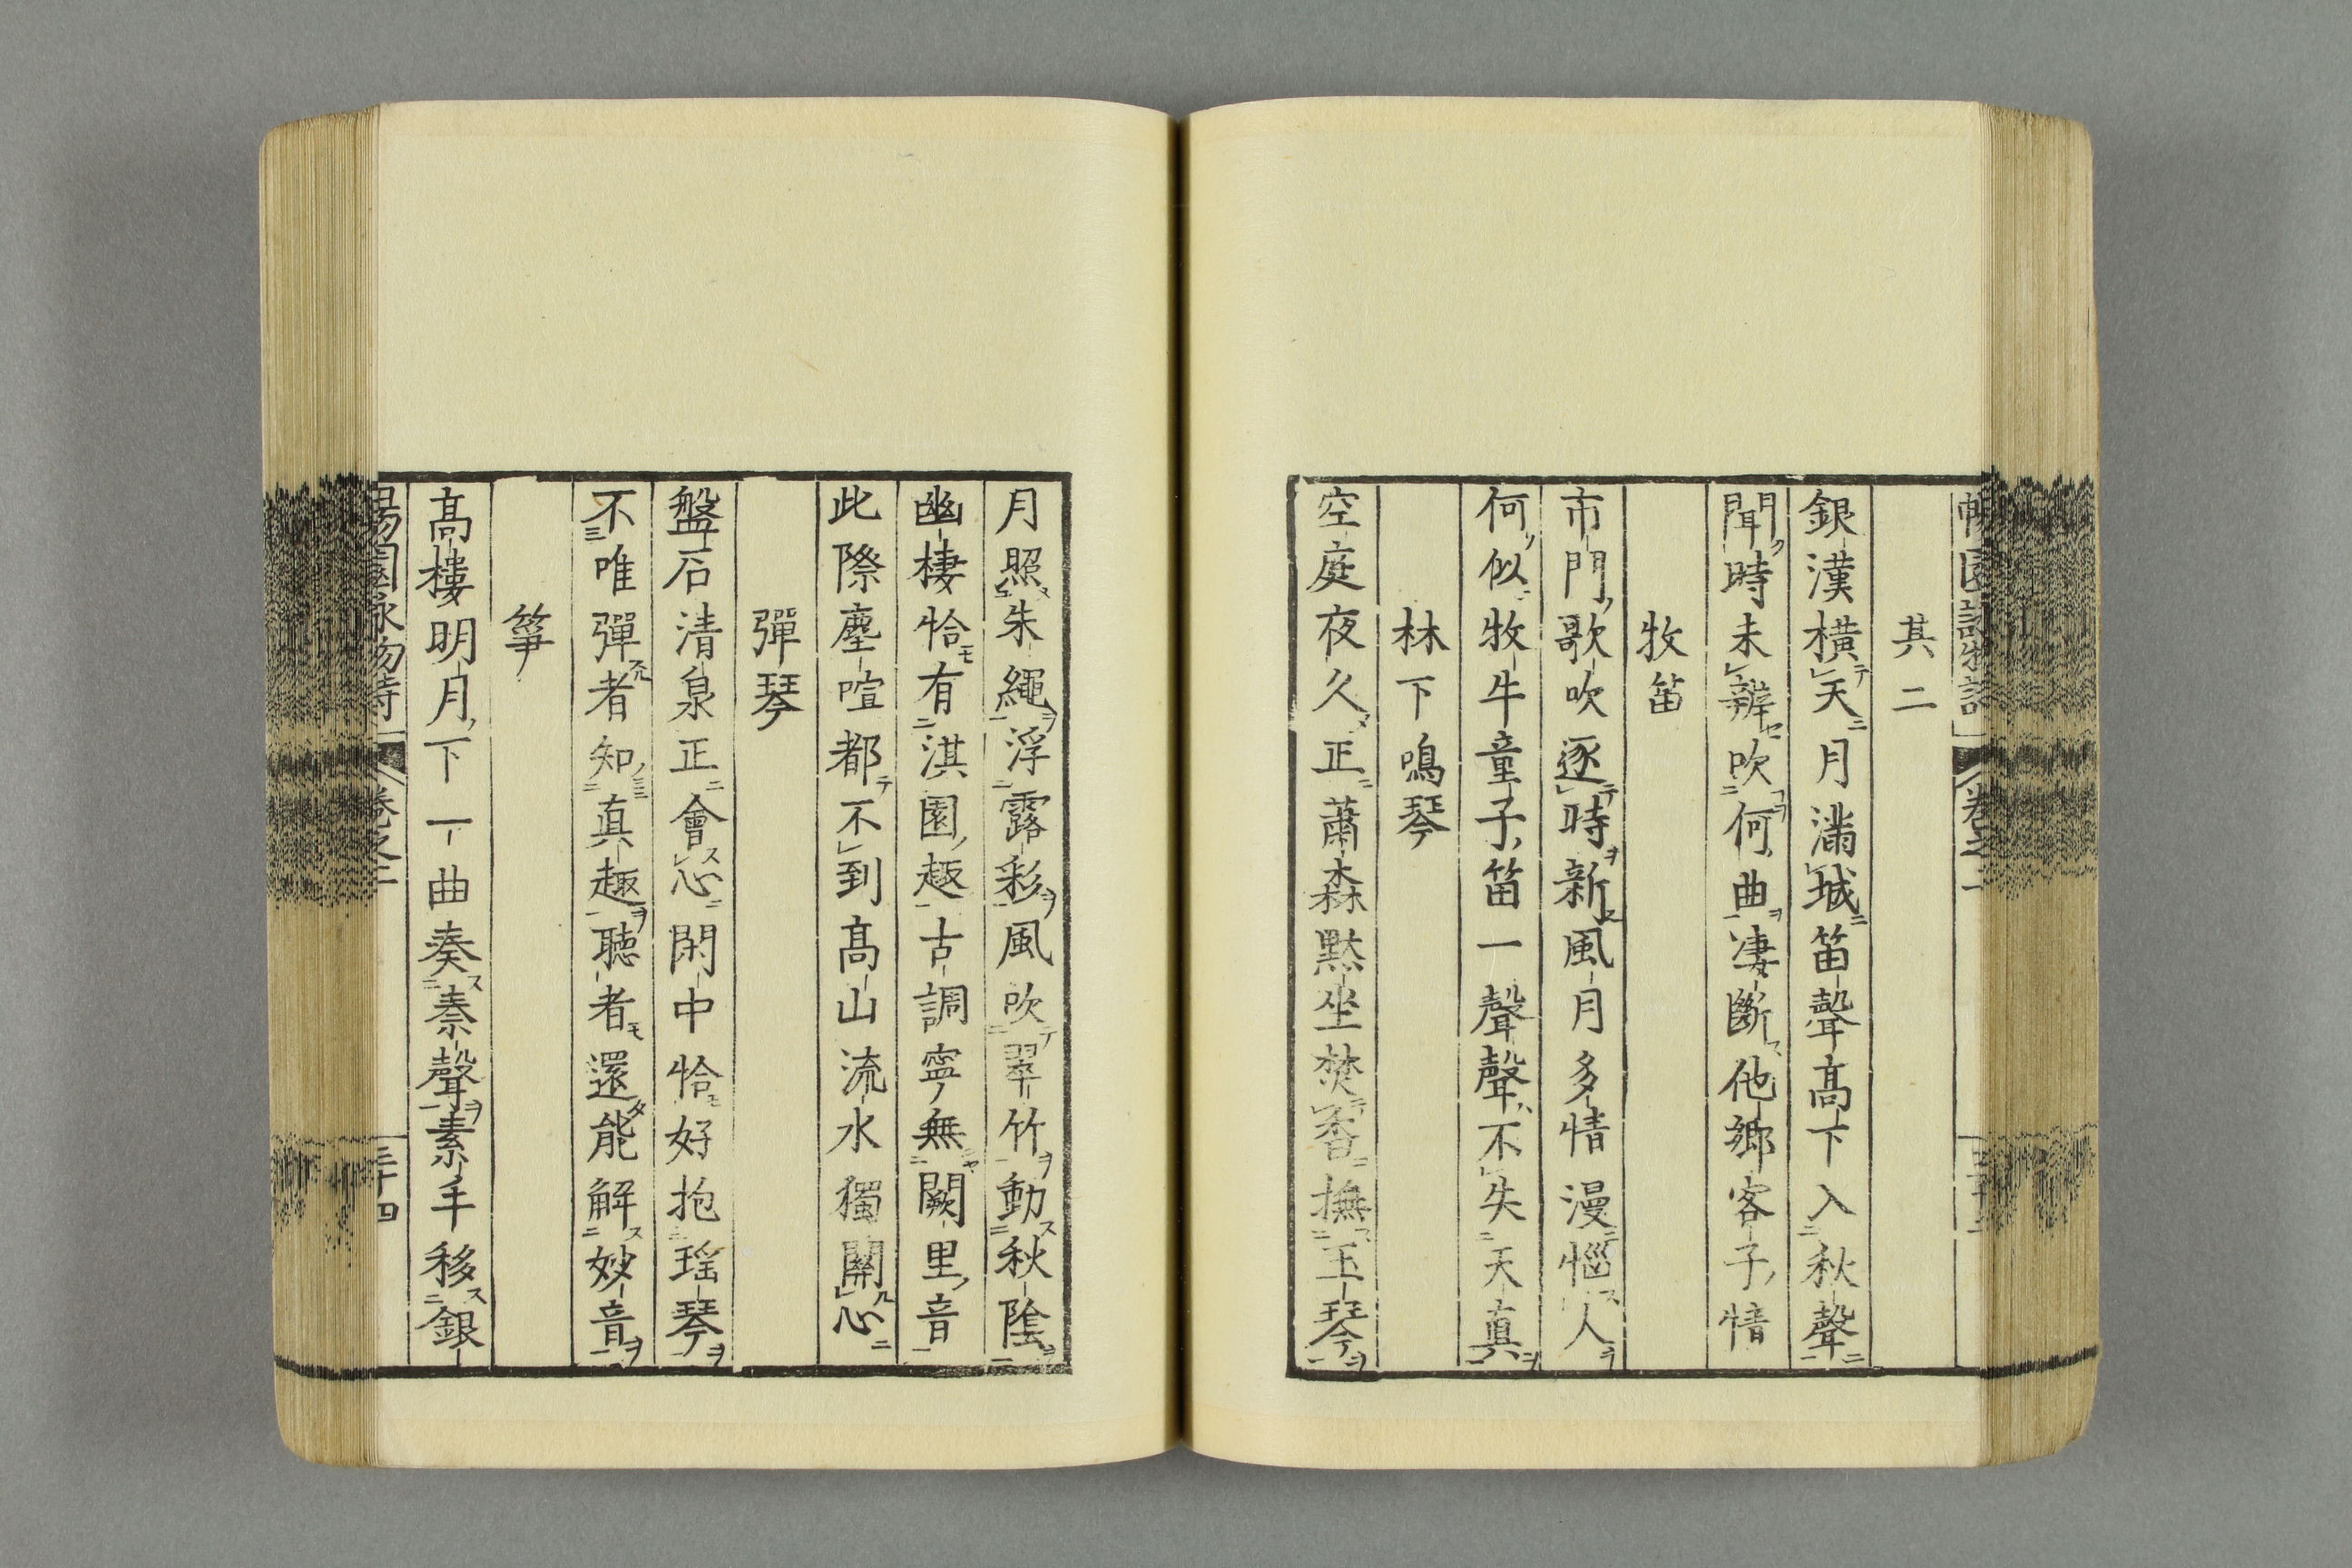 其二
銀漢橫天月滿城笛聲高下入秋聲
聞時未辨吹何曲凄斷他鄉客子情
牧笛
市門歌吹逐時新風月多情漫惱人
何似牧牛童子笛一聲聲不失天真
林下鳴琴
空庭夜久正蕭森黙坐焚香撫玉琴
月照朱繩浮露彩風吹翠竹動秋陰
幽棲恰有淇園趣古調寧無闕里音
此際塵喧都不到高山流水獨關心
彈琴
盤石清泉正會心閑中恰好抱瑶琴
不唯彈者知真趣聴者還能解妙音
箏
高樓明月下一曲奏秦聲素手移銀
園詠物詩 卷之二 三十四